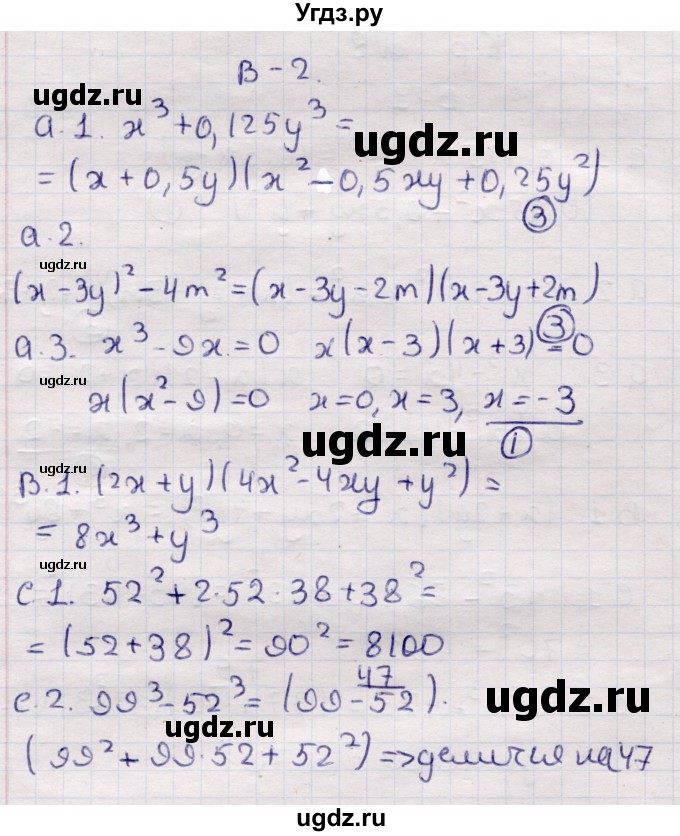 Угдз.ру
В-2.
ugdz.ru
a.1. x³+0,125y³=
ugdz.ru
=(x+0,5y)(x²-0,5xy+0,25y²)
③
a.2.
ugdz.ru
(x-3y)²-4m²=(x-3y-2m)(x-3y+2m)
③
a.3. x³-9x=0 x(x-3)(x+3)=0
ugdz.ru
x(x²-9)=0 x=0, x=3, x=-3
ugdz.ru
①
B.1. (2x+y)(4x²-4xy+y²)=
ugdz.ru
=8x³+y³
ugdz.ru
C.1. 52²+2·52·38+38²=
=(52+38)²=90²=8100
ugdz.ru
47
c.2. 99³-52³=(99-52)·
ugdz.ru
ugdz.ru
(99²+99·52+52²)=>делится на 47
ugdz.ru
ugdz.ru